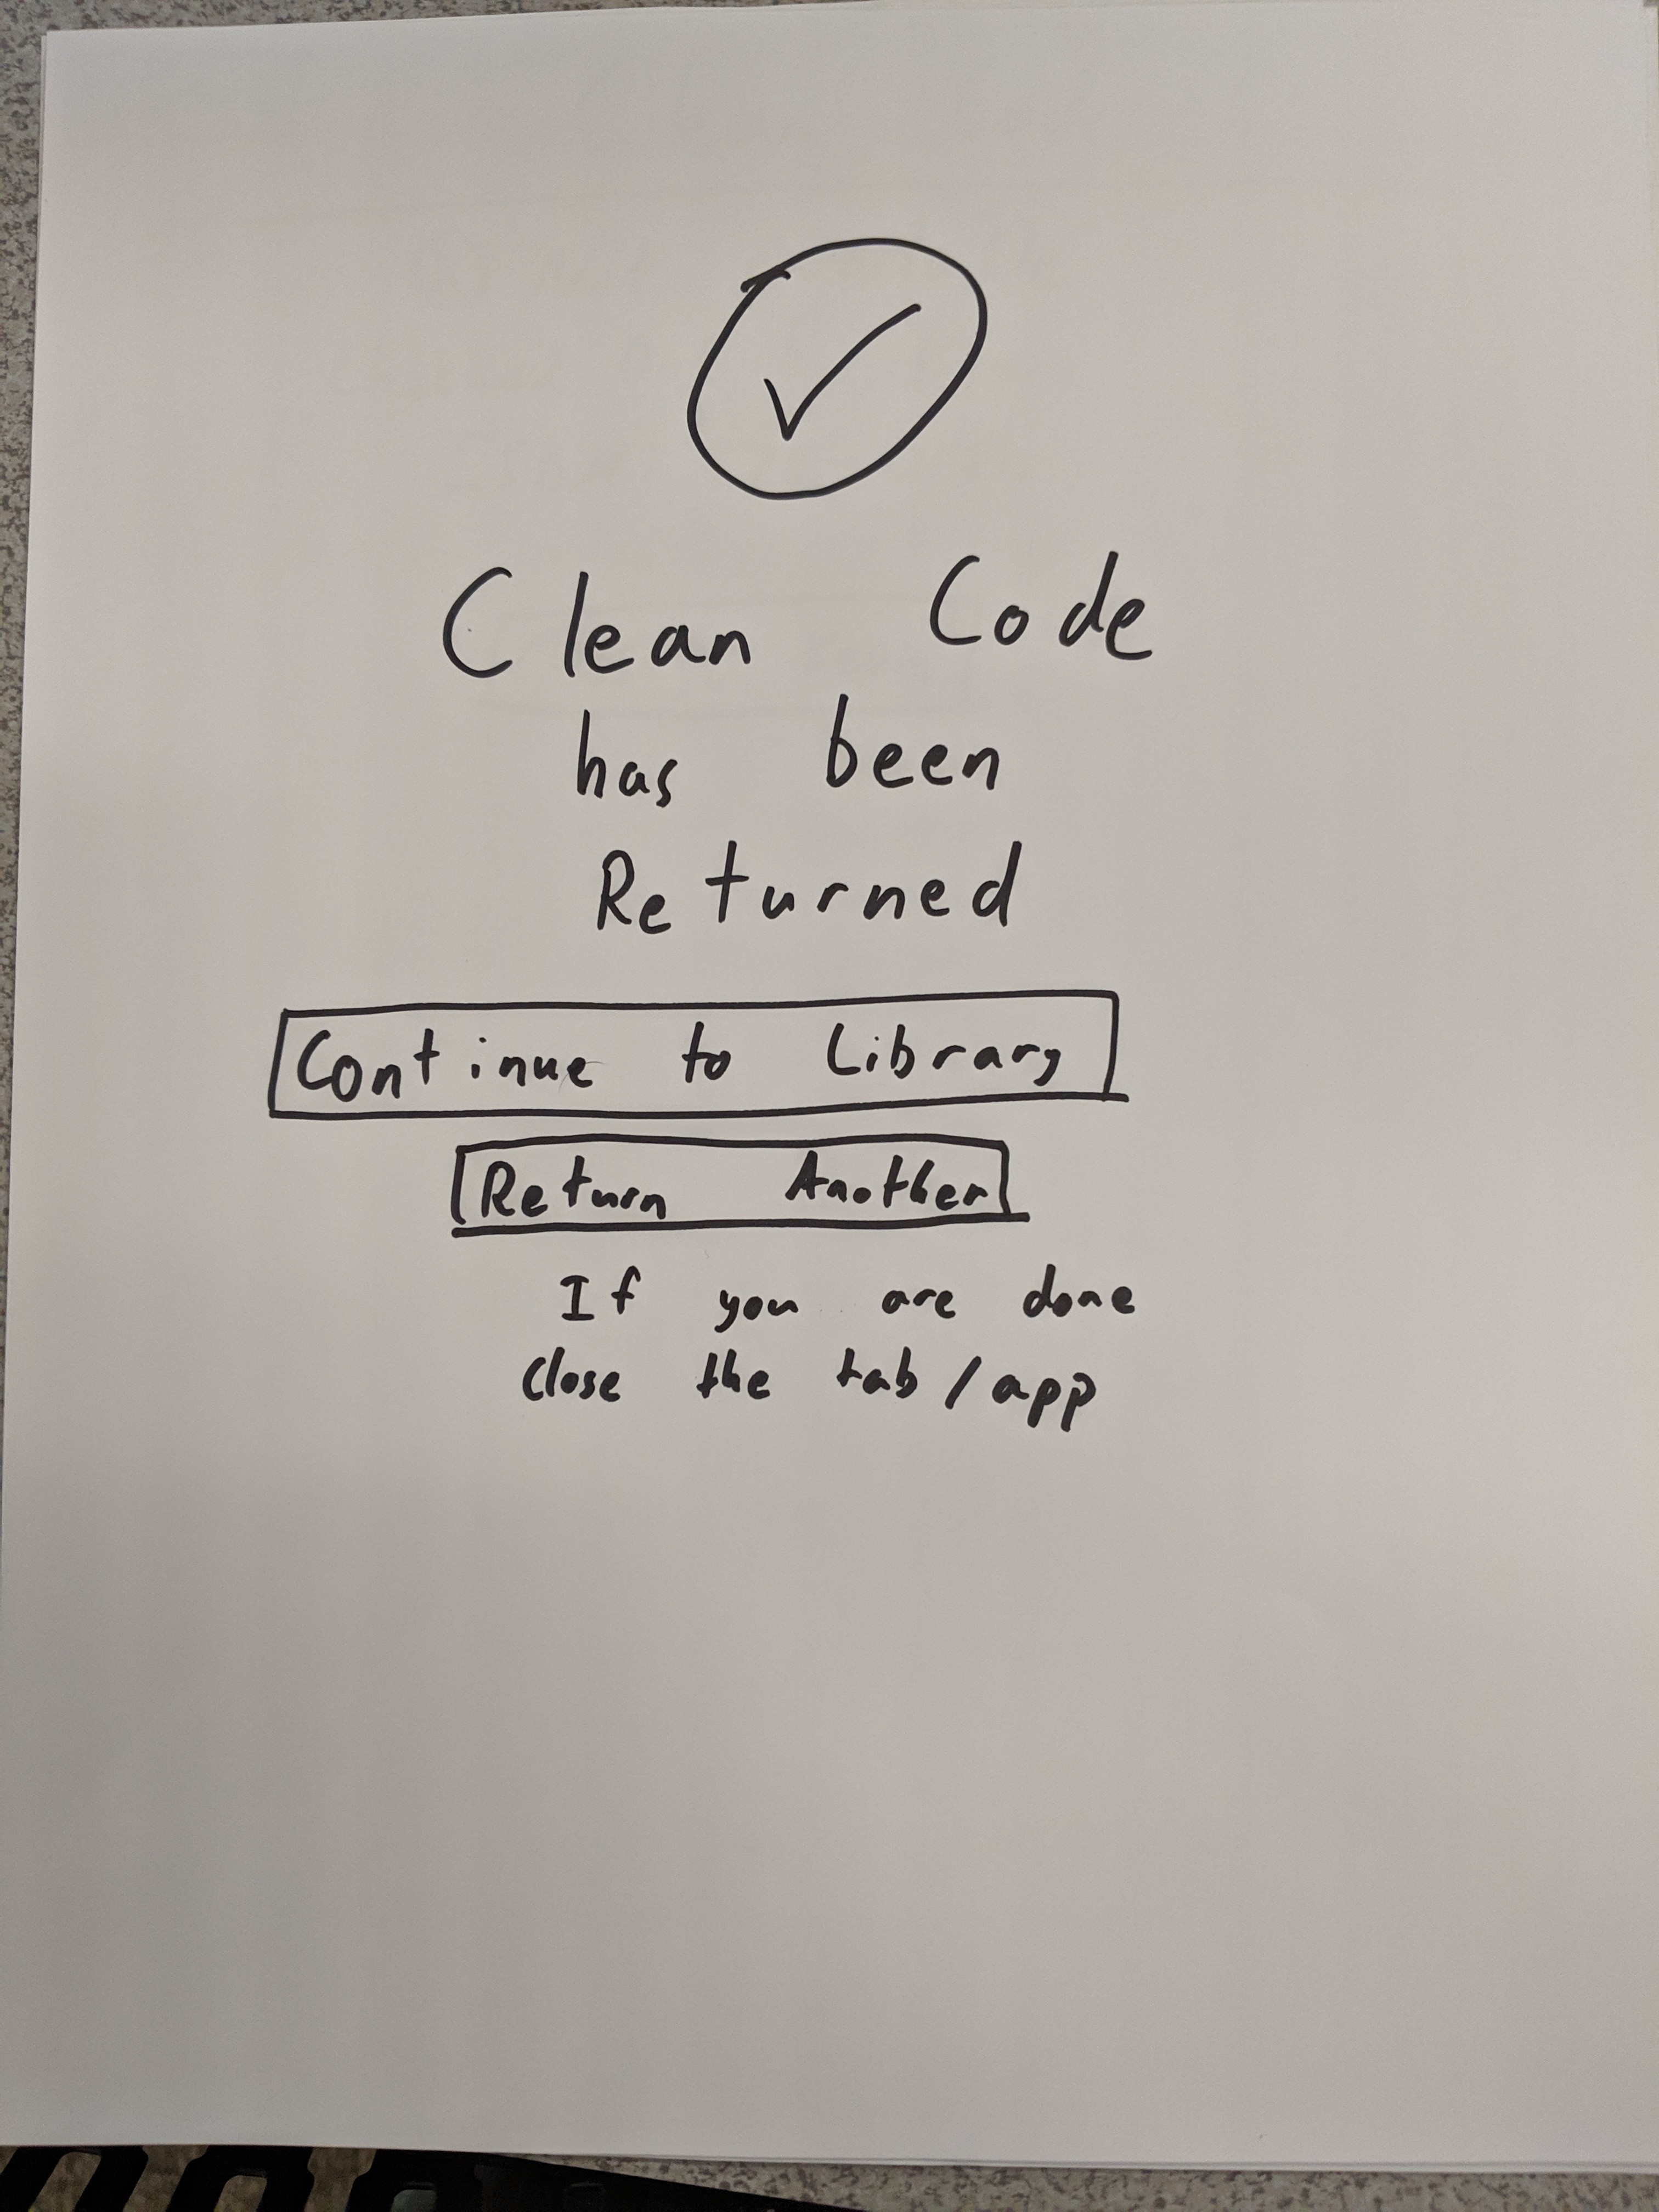 Clean Code
has been
Returned
Continue to Library
Return Another
If you are done
close the tab/app